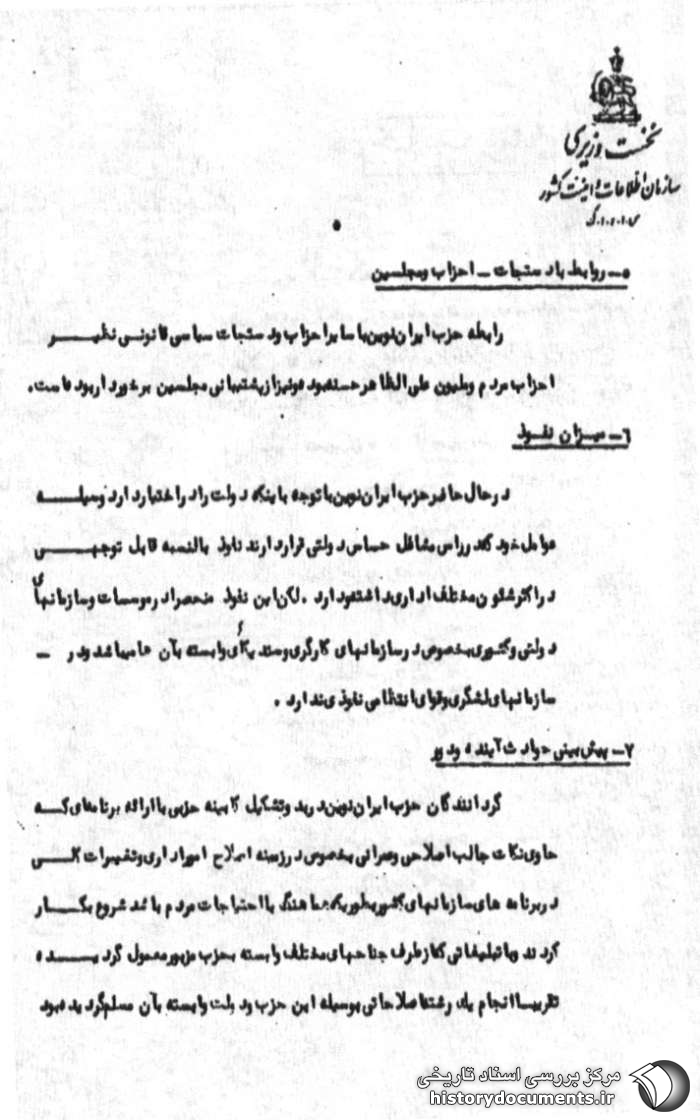 نخست وزیری
سازمان اطلاعات و امنیت کشور
س.ا.و.ا.ک
۵ــ روابط با دستجات ــ احزاب و مجلسین
رابطه حزب ایران نوین با سایر احزاب و دستجات سیاسی قانونی نظیر
احزاب مردم و ملیون علی الظاهر حسنه بوده و نیز از پشتیبانی مجلسین برخوردار بوده است.
۶ــ میزان نفوذ
در حال حاضر حزب ایران نوین با توجه باینکه دولت را در اختیار دارد وسیله
عوامل خود که در راس مشاغل حساس دولتی قرار دارند نفوذ بالنسبه قابل توجهی
در اکثر شئون مختلف اداری داشته و دارد . لکن این نفوذ منحصرا در موسسات و سازمانهای
دولتی و کشوری بخصوص در سازمانهای کارگری و سندیکای وابسته بآن ها میباشد و در ــ
سازمانهای لشگری و قوای انتظامی نفوذی ندارد .
۷ــ پیش بینی حوادث آینده و دور
گردانندگان حزب ایران نوین در بدو تشکیل کابینه حزبی با ارائه برنامه‌ای که
حاوی نکات جالب اصلاحی و عمرانی بخصوص در زمینه اصلاح امور اداری و تغییرات کلی
در برنامه های سازمانهای کشور بطوریکه هماهنگ با احتیاجات مردم باشد شروع بکار
کردند و با تبلیغاتی که از طرف جناحهای مختلف وابسته بحزب مزبور معمول گردیده
تقریبا انجام یک رشته اصلاحاتی بوسیله این حزب و دولت وابسته بآن مسلم گردیده بود
مرکز بررسی اسناد تاریخی
historydocuments.ir